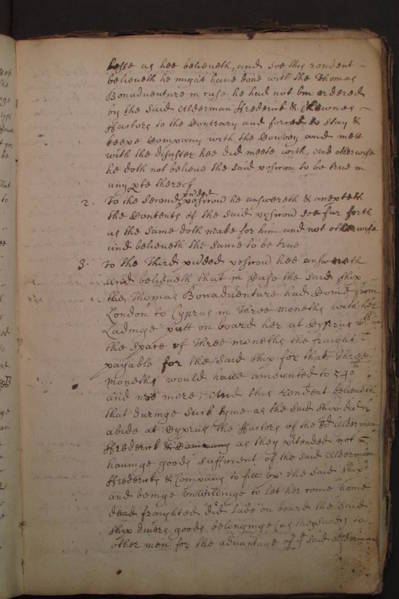 lesse as hee beleiveth, and soe this rendent
beleiveth he might have done with the Thomas
Bonadventure in case he had not bin ordered
by the said Alderman Frederick &
Factors to the Contrary and forced to stay &
keepe Company with the Convoy and mett
with the disaster hee did meete with, and otherwise
he doth not beleive the said posicion to be true in
any pte thereof
2. To the second added posicion he answereth &
the Contents of the said posicion soe fur forth
as the same doth make for him and not otherwise
and beleiveth the same to be true
3. To the Third added posicion hee answereth
and beleiveth that in Case the said ship
the Thomas Bonadventure had from
London to Cyprus in Three moneths with her
Ladinge putt on board her at Cyprus
the space of Three moneths the freight
payable for the said ship for that Three
moneths would have amounted to
and noe more And this Rendent beleiveth
that duringe such tyme as the said ship did
abide at Cyprus the Factors of the sd Alderman
Frederick & Company as they pretended not
havinge goods sufficient of the said Alderman
Fredericks & Company to fill up the said ship
and beinge unwillinge to let her come home
dead fraighted did lade on board the said
ship divers goods belonginge to
other men for the advantage of ye said Alderman